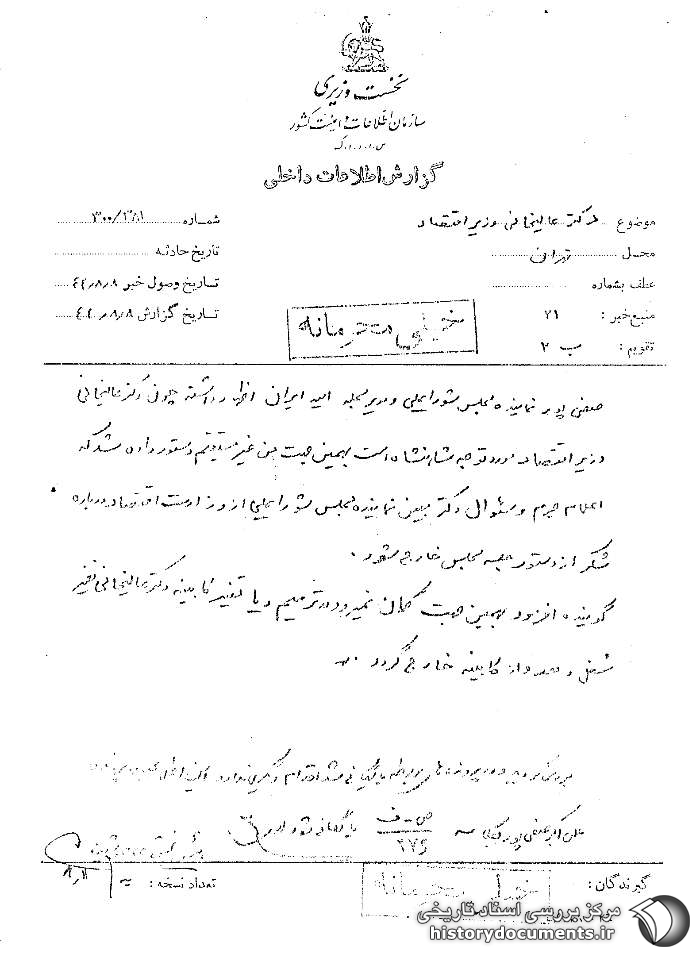 نخست وزیری
سازمان اطلاعات و امنیت کشور
س.ا.و.ا.ک
گزارش اطلاعات داخلی
موضوع دکتر عالیخانی وزیر اقتصاد
شماره ۳۰۰/۳۸۱
محل تهران
تاریخ حادثه
عطف بشماره
تاریخ وصول خبر ۴۲/۸/۸
منبع خبر : ۲۱
تاریخ گزارش ۴۲/۸/۸
خیلی محرمانه
تقویم : ب ۲
صفی پور نماینده مجلس شورایملی و مدیر مجله امید ایران اظهار داشته چون دکتر عالیخانی
وزیر اقتصاد مورد توجه شاهنشاه است بهمین جهت من غیر مستقیم دستور داده شد که
اعلام جرم و سئوال دکتر مبین نماینده مجلس شورایملی از وزارت اقتصاد درباره
شکر از دستور جلسه مجلس خارج شود .
گوینده افزود بهمین جهت گمان نمیرود در ترمیم و یا تغییر کابینه دکتر عالیخانی تغییر
شغل دهد و از کابینه خارج گردد .
علی اکبر صفی پور
ص-ف
۲۷۶
بایگانی شود
۸/۱۱
گیرندگان :
خیلی محرمانه
تعداد نسخه :
مرکز بررسی اسناد تاریخی
historydocuments.ir